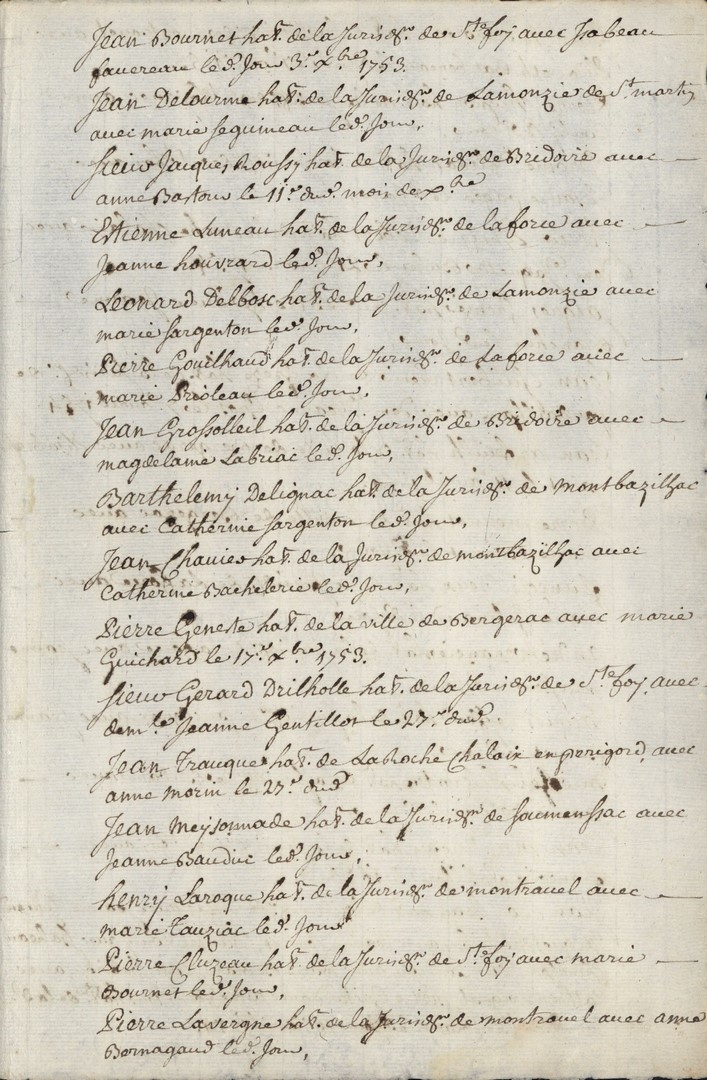 Jean Bournet hat. de la Jurisdn. de Ste foy avec Isabeau
favereau le d. Jour 3e. xbre 1753.
Jean Delourme hat. de la Jurisdn. de Lamonzie de St martin
avec marie seguineau le d. Jour,
sieur Jacques Roussy hat. de la Jurisdn. de Bridoire avec
anne Bastou le 11e. du d. mois de xbre
Estienne Luneau hat. de la Jurisdn. de laforce avec
Jeanne houvrard le d. Jour,
Leonard Delbosc hat. de la Jurisdn. de Lamonzie avec
marie sargenton le d. Jour,
Pierre Gouilhaud hat. de la Jurisdn. de Laforce avec
marie Prioleau le d. Jour,
Jean Grossolleil hat. de la Jurisdn. de Bridoire avec
magdelaine Labriac le d. Jour,
Barthelemy Delignac hat. de la Jurisdn. de montbazilhac
avec Catherine sargenton le d. Jour,
Jean Chavier hat. de la Jurisdn. de montbazilhac avec
Catherine Bachelerie le d. Jour,
Pierre Geneste hat. de la ville de Bergerac avec marie
Guichard le 17e. xbre 1753.
sieur Gerard Drilholle hat. de la Jurisdn. de Ste foy avec
demlle Jeanne Gentillot le 27e. du d.
Jean Trauque hat. de LaRoche Chalaix en perigord, avec
anne morin le 27e. du d.
Jean meysonnade hat. de la Jurisdn. de soumenssac avec
Jeanne Bauduc le d. Jour,
henry Laroque hat. de la Jurisdn. de montravel avec
marie Tauziac le d. Jour
Pierre Cluzeau hat. de la Jurisdn. de Ste foy avec marie
Bournet le d. Jour,
Pierre Lavergne hat. de la Jurisdn. de montravel avec anne
Bernagaud le d. Jour,